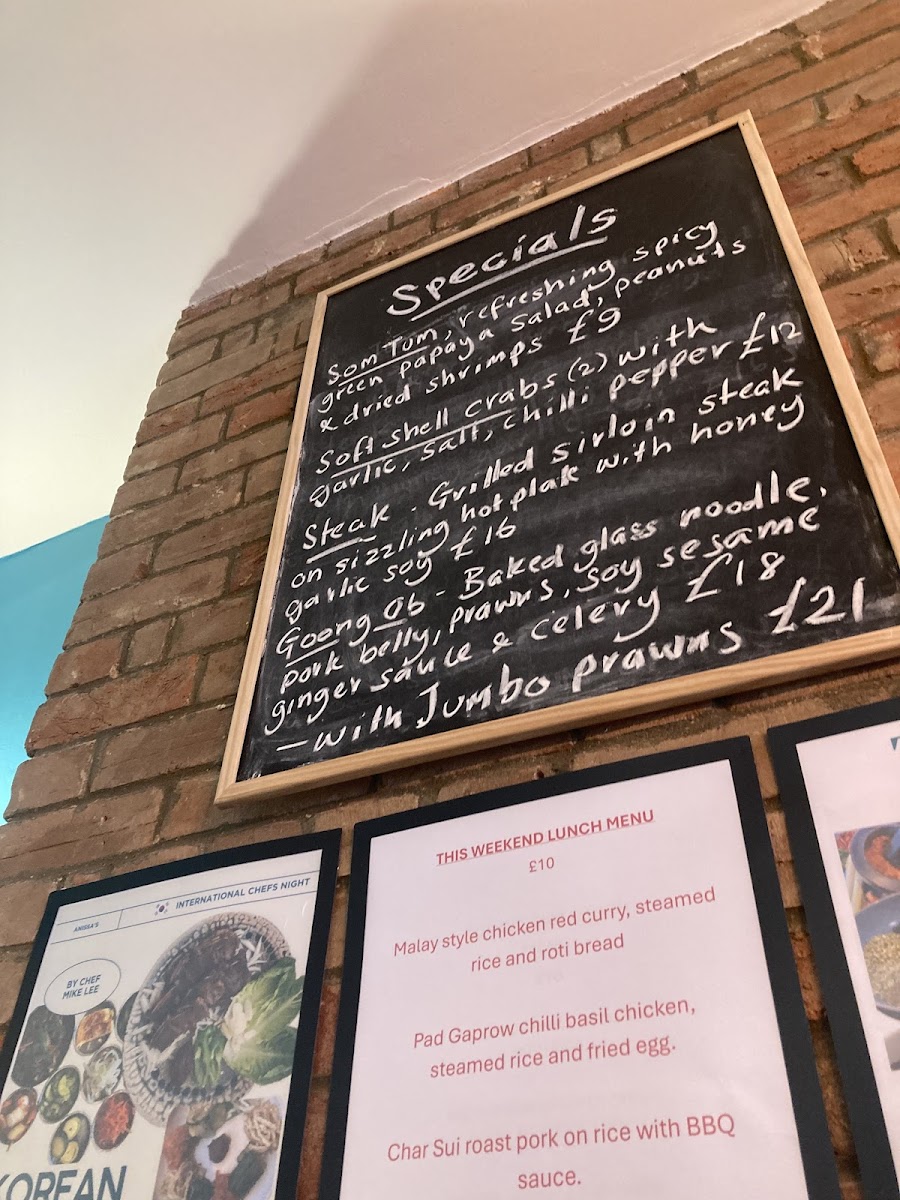 Specials
Som Tum, refreshing spicy
green papaya salad, peanuts
& dried shrimps £9
Soft shell crabs (2) with
garlic, salt, chilli pepper £12
Steak - Grilled sirloin steak
on sizzling hot plate with honey
garlic soy £16
Goong Ob - Baked glass noodle,
pork belly, prawns, soy sesame
ginger sauce & celery £18
- with Jumbo prawns £21
ANISSA'S
INTERNATIONAL CHEFS NIGHT
BY CHEF
MIKE LEE
KOREAN
THIS WEEKEND LUNCH MENU
£10
Malay style chicken red curry, steamed
rice and roti bread
Pad Gaprow chilli basil chicken,
steamed rice and fried egg.
Char Sui roast pork on rice with BBQ
sauce.